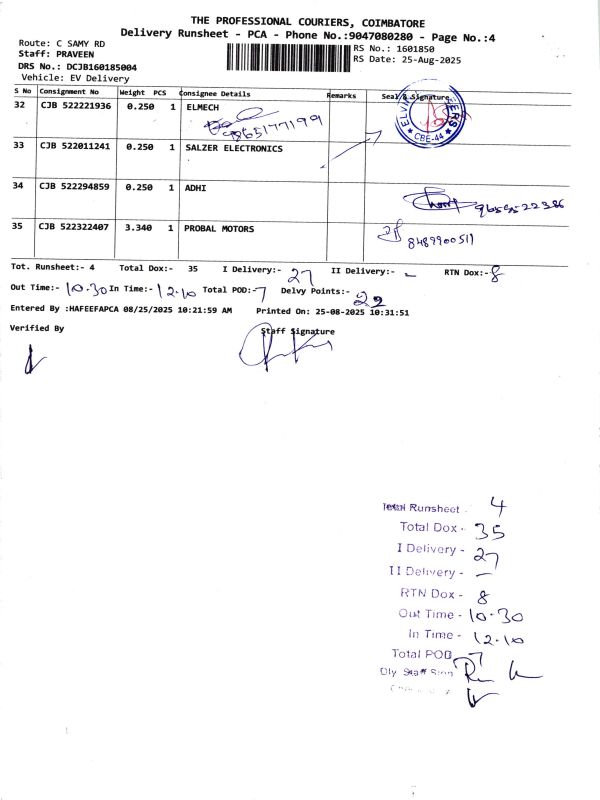 THE PROFESSIONAL COURIERS, COIMBATORE
Delivery Runsheet - PCA - Phone No.:9047080280 - Page No.:4
Route: C SAMY RD
Staff: PRAVEEN
DRS No.: DCJB160185004
Vehicle: EV Delivery
RS No.: 1601850
RS Date: 25-Aug-2025
S No Consignment No Weight PCS Consignee Details Remarks Seal & Signature
32 CJB 522221936 0.250 1 ELMECH
9865177199
CBE-44
33 CJB 522011241 0.250 1 SALZER ELECTRONICS
34 CJB 522294859 0.250 1 ADHI
9659522386
35 CJB 522322407 3.340 1 PROBAL MOTORS
8489900511
Tot. Runsheet:- 4 Total Dox:- 35 I Delivery:- 27 II Delivery:- - RTN Dox:- 8
Out Time:- 10.30 In Time:- 12.10 Total POD:- 7 Delvy Points:- 22
Entered By :HAFEEFAPCA 08/25/2025 10:21:59 AM Printed On: 25-08-2025 10:31:51
Verified By Staff Signature
Total Runsheet - 4
Total Dox - 35
I Delivery - 27
II Delivery - -
RTN Dox - 8
Out Time - 10.30
In Time - 12.10
Total POD - 7
Dly Staff Sign